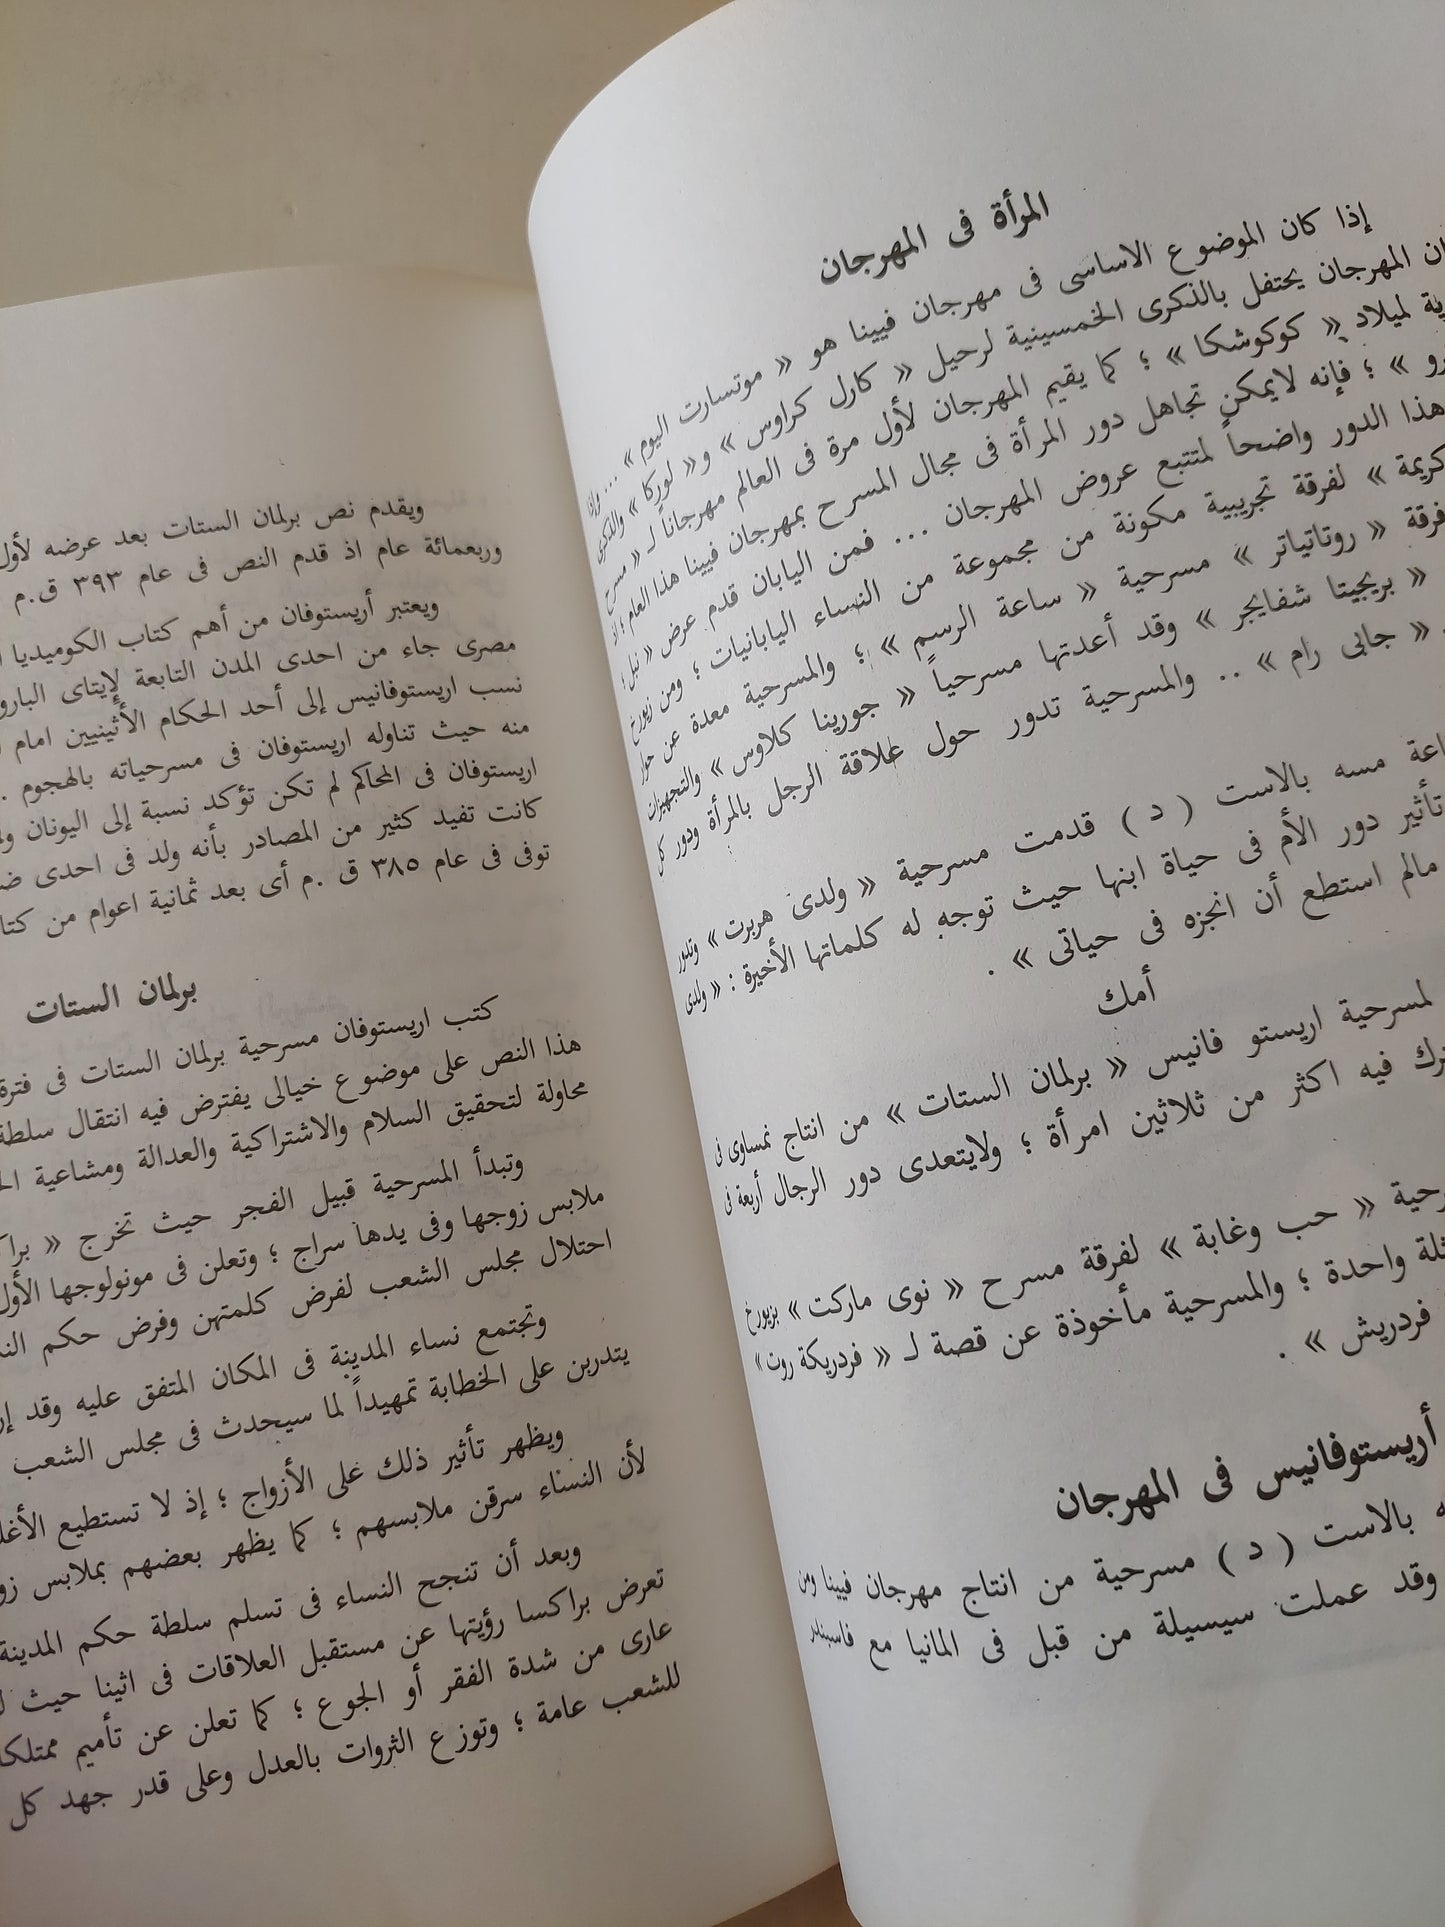 المرأة فى المهرجان
إذا كان الموضوع الاساسى فى مهرجان فيينا هو « موتسارت اليوم » ... وإذا
ان المهرجان يحتفل بالذكرى الخمسينية لرحيل « كارل كراوس » و« لوركا » والذكرى
ية لميلاد « كوكوشكا » ؛ كما يقيم المهرجان لأول مرة فى العالم مهرجاناً لـ « مسرح
رو » ؛ فإنه لايمكن تجاهل دور المرأة فى مجال المسرح بمهرجان فيينا هذا العام ؛
هذا الدور واضحاً لمتتبع عروض المهرجان ... فمن اليابان قدم عرض « نبل ؛
كريمة » لفرقة تجريبية مكونة من مجموعة من النساء اليابانيات ؛ ومن زيورخ
فرقة « روتاتياتر » مسرحية « ساعة الرسم » ؛ والمسرحية معدة عن حوار
« بريجيتا شفايجر » وقد أعدتها مسرحياً « جورينا كلاوس » والتجهيزات
« جابى رام » .. والمسرحية تدور حول علاقة الرجل بالمرأة ودور كل
اعة مسه بالاست ( د ) قدمت مسرحية « ولدى هربرت » وتدور
تأثير دور الأم فى حياة ابنها حيث توجه له كلماتها الأخيرة : « ولدى
مالم استطع أن انجزه فى حياتى » .
أمك
لمسرحية اريستو فانيس « برلمان الستات » من انتاج نمساوى فى
ترك فيه اكثر من ثلاثين امرأة ؛ ولايتعدى دور الرجال أربعة فى
رحية « حب وغابة » لفرقة مسرح « نوى ماركت » بزيورخ
ثلة واحدة ؛ والمسرحية مأخوذة عن قصة لـ « فردريكة روت »
فردريش » .
أريستوفانيس فى المهرجان
ه بالاست ( د ) مسرحية من انتاج مهرجان فيينا ومن
وقد عملت سيسيلة من قبل فى المانيا مع فاسبندر
ويقدم نص برلمان الستات بعد عرضه لأول
وربعمائة عام اذ قدم النص فى عام ٣٩٣ ق.م
ويعتبر أريستوفان من أهم كتاب الكوميديا
مصرى جاء من احدى المدن التابعة لإيتاى البارو
نسب اريستوفانيس إلى أحد الحكام الأثينيين امام
منه حيث تناوله اريستوفان فى مسرحياته بالهجوم .
اريستوفان فى المحاكم لم تكن تؤكد نسبة إلى اليونان
كانت تفيد كثير من المصادر بأنه ولد فى احدى
توفى فى عام ٣٨٥ ق .م أى بعد ثمانية اعوام من كتا
برلمان الستات
كتب اريستوفان مسرحية برلمان الستات فى فترة
هذا النص على موضوع خيالى يفترض فيه انتقال سلطة
محاولة لتحقيق السلام والاشتراكية والعدالة ومشاعية
وتبدأ المسرحية قبيل الفجر حيث تخرج « براك
ملابس زوجها وفى يدها سراج ؛ وتعلن فى مونولوجها الأول
احتلال مجلس الشعب لفرض كلمتهن وفرض حكم
وتجتمع نساء المدينة فى المكان المتفق عليه وقد
يتدربن على الخطابة تمهيداً لما سيحدث فى مجلس الشعب
ويظهر تأثير ذلك على الأزواج ؛ إذ لا تستطيع
لأن النساء سرقن ملابسهم ؛ كما يظهر بعضهم بملابس
وبعد أن تنجح النساء فى تسلم سلطة حكم المدينة
تعرض براكسا رؤيتها عن مستقبل العلاقات فى اثينا حيث
عارى من شدة الفقر أو الجوع ؛ كما تعلن عن تأميم ممتلكا
للشعب عامة ؛ وتوزع الثروات بالعدل وعلى قدر جهد كل